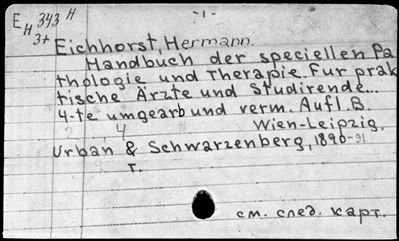 E H 343 H
3+
- 1 -
Eichhorst, Hermann.
Handbuch der speciellen Pa
thologie und Therapie. Fur prak
tische Ärzte und Studirende...
4-te umgearb und verm. Aufl. B.
2, 4 Wien-Leipzig,
Urban & Schwarzenberg, 1890-91
T.
см. след. карт.